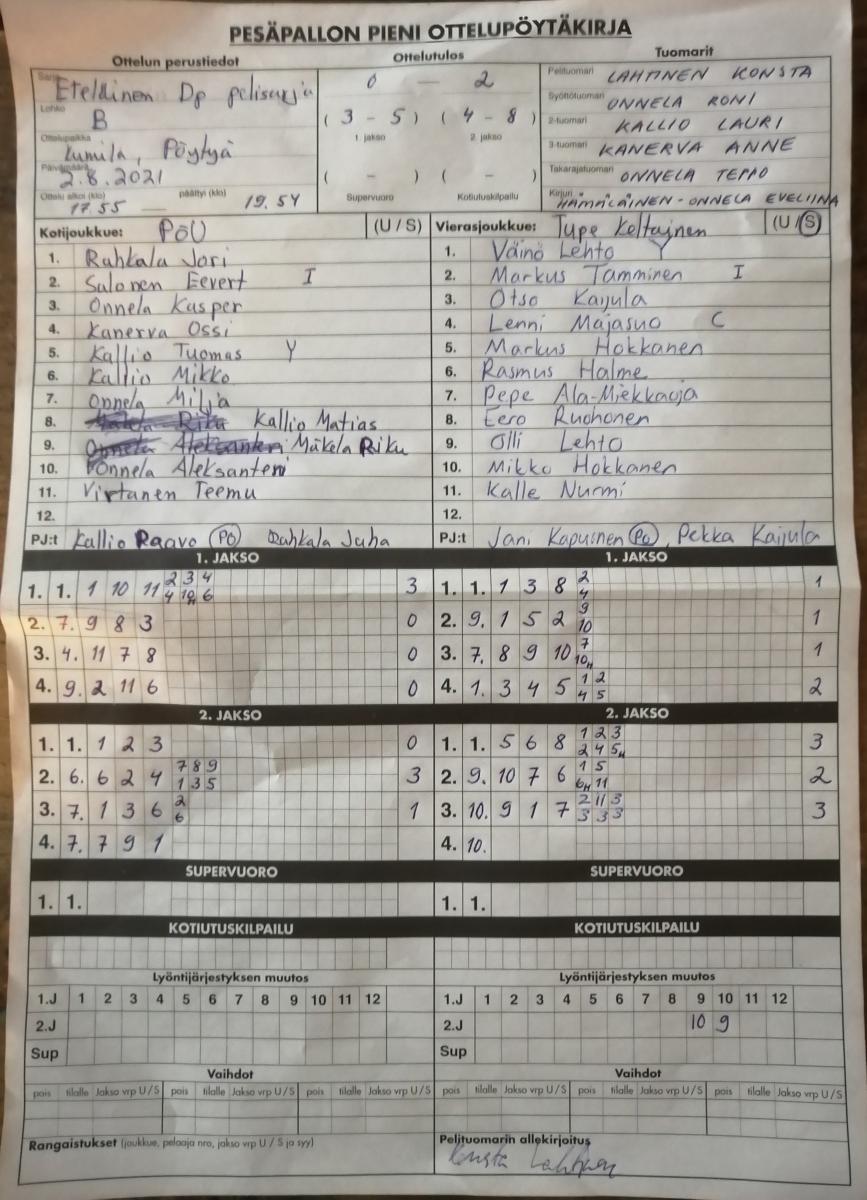 PESÄPALLON PIENI OTTELUPÖYTÄKIRJA
Ottelun perustiedot Ottelutulos Tuomarit
Sarja Eteläinen Dp pelisarja
Lohko B
Ottelupaikka Kumila, Pöytyä
Päivämäärä 2.8.2021
Ottelu alkoi (klo) 17.55 — päättyi (klo) 19.54
0 — 2
( 3 - 5 ) ( 4 - 8 )
1. jakso 2. jakso
( - ) ( - )
Supervuoro Kotiutuskilpailu
Pelituomari LAHTINEN KONSTA
Syöttötuomari ONNELA RONI
2-tuomari KALLIO LAURI
3-tuomari KANERVA ANNE
Takarajatuomari ONNELA TEPPO
Kirjuri HÄMÄLÄINEN-ONNELA EVELIINA
Kotijoukkue: PöU (U / S)
1. Rahkala Jori
2. Salonen Eevert I
3. Onnela Kasper
4. Kanerva Ossi
5. Kallio Tuomas Y
6. Kallio Mikko
7. Onnela Milja
8. Mäkelä Riku Kallio Matias
9. Onnela Aleksanteri Mäkelä Riku
10. Onnela Aleksanteri
11. Virtanen Teemu
12.
PJ:t Kallio Paavo (Pö) Rahkala Juha
Vierasjoukkue: Tupe Keltainen (U / S)
1. Väinö Lehto Y
2. Markus Tamminen I
3. Otso Kaijula
4. Lenni Majasuo C
5. Markus Hokkanen
6. Rasmus Halme
7. Pepe Ala-Miekkaoja
8. Eero Ruohonen
9. Olli Lehto
10. Mikko Hokkanen
11. Kalle Nurmi
12.
PJ:t Jani Kapuinen (Pö), Pekka Kaijula
1. JAKSO 1. JAKSO
2 3 4 2
1. 1. 1 10 11 3 1. 1. 1 3 8 1
4 10H 6 4
9
2. 7. 9 8 3 0 2. 9. 1 5 2 1
10
7
3. 4. 11 7 8 0 3. 7. 8 9 10 1
10H
1 2
4. 9. 2 11 6 0 4. 1. 3 4 5 2
4 5
2. JAKSO 2. JAKSO
1 2 3
1. 1. 1 2 3 0 1. 1. 5 6 8 3
2 4 5H
7 8 9 1 5
2. 6. 6 2 4 3 2. 9. 10 7 6 2
1 3 5 6H 11
2 2 11 3
3. 7. 1 3 6 1 3. 10. 9 1 7 3
6 3 3 3
4. 7. 7 9 1 4. 10.
SUPERVUORO SUPERVUORO
1. 1. 1. 1.
KOTIUTUSKILPAILU KOTIUTUSKILPAILU
Lyöntijärjestyksen muutos Lyöntijärjestyksen muutos
1.J 1 2 3 4 5 6 7 8 9 10 11 12 1.J 1 2 3 4 5 6 7 8 9 10 11 12
2.J 2.J 10 9
Sup Sup
Vaihdot Vaihdot
pois tilalle Jakso vrp U / S pois tilalle Jakso vrp U / S pois tilalle Jakso vrp U / S pois tilalle Jakso vrp U / S pois tilalle Jakso vrp U / S pois tilalle Jakso vrp U / S
Rangaistukset (joukkue, pelaaja nro, jakso vrp U / S ja syy) Pelituomarin allekirjoitus
Konsta Lahtinen